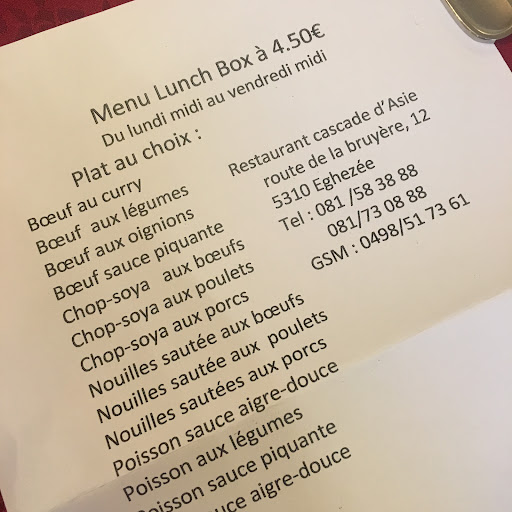 Menu Lunch Box à 4.50€
Du lundi midi au vendredi midi
Plat au choix :
Bœuf au curry
Bœuf aux légumes
Bœuf aux oignions
Bœuf sauce piquante
Chop-soya aux bœufs
Chop-soya aux poulets
Chop-soya aux porcs
Nouilles sautée aux bœufs
Nouilles sautée aux poulets
Nouilles sautées aux porcs
Poisson sauce aigre-douce
Poisson aux légumes
Poisson sauce piquante
aigre-douce
Restaurant cascade d'Asie
route de la bruyère, 12
5310 Eghezée
Tel : 081 /58 38 88
081/73 08 88
GSM : 0498/51 73 61